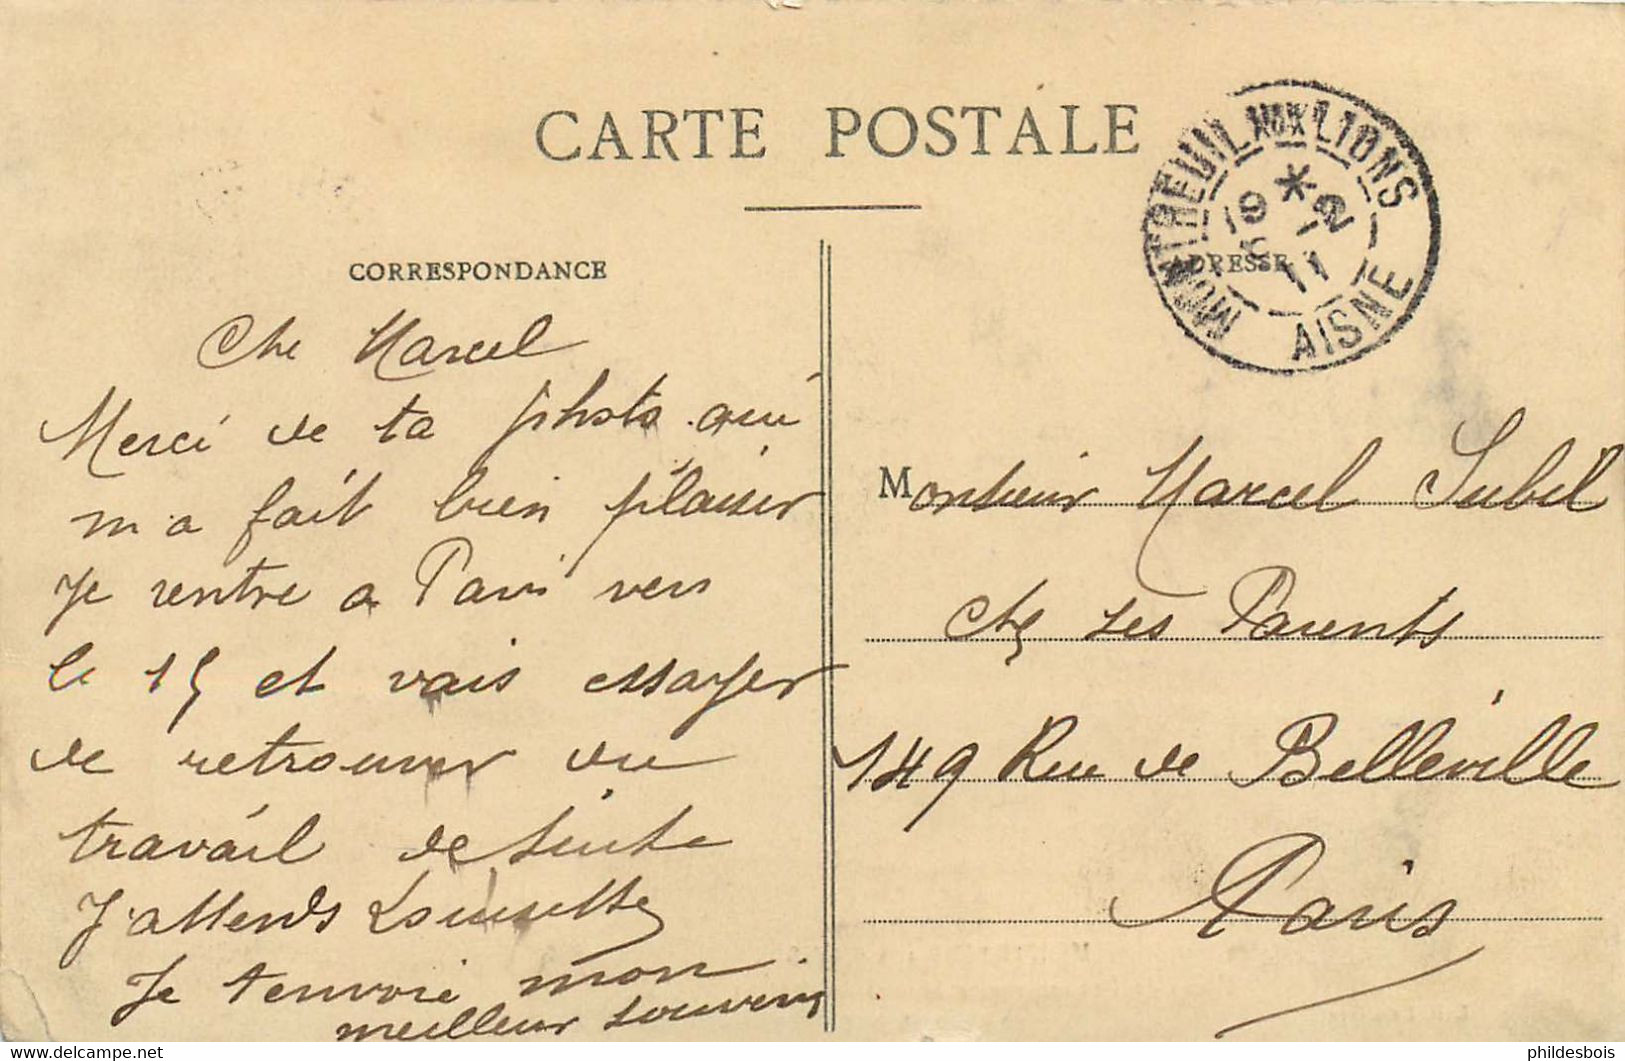 CARTE POSTALE
CORRESPONDANCE
ADRESSE
MONTREUIL AUX LIONS
9 * 2
5 - 11
AISNE
Che Marcel
Merci de ta photo qui
m a fait bien plaisir
Je rentre a Paris vers
le 15 et vais essayer
de retrouver du
travail de suite
J'attends Louisette
Je tenvoie mon
meilleur souvenir
Monsieur Marcel Subil
chez ses Parents
149 Rue de Belleville
Paris
www.delcampe.net
phildesbois